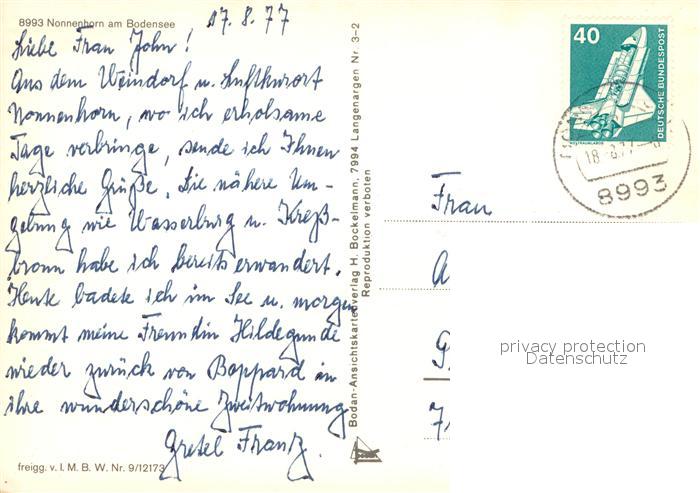 8993 Nonnenhorn am Bodensee
17.8.77
Liebe Frau John!
Aus dem Weindorf u. Luftkurort
Nonnenhorn, wo ich erholsame
Tage verbringe, sende ich Ihnen
herzliche Grüße. Die nähere Um-
gebung wie Wasserburg u. Kreß-
bronn habe ich bereits erwandert.
Heute badete ich im See u. morgen
kommt meine Freundin Hildegunde
wieder zurück von Boppard in
ihre wunderschöne Zweitwohnung
Gretel Frantz.
freigg. v. I. M. B. W. Nr. 9/12173
Bodan-Ansichtskartenverlag H. Bockelmann, 7994 Langenargen Nr. 3-2
Reproduktion verboten
40
DEUTSCHE BUNDESPOST
WELTRAUMLABOR
8993
Frau
privacy protection
Datenschutz